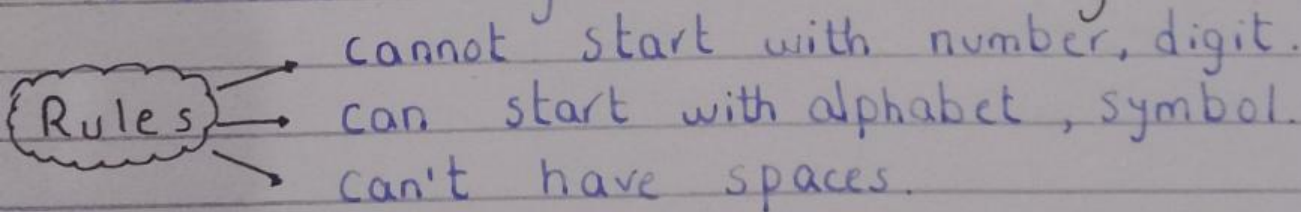 cannot start with number, digit.
Rules can start with alphabet, symbol.
can't have spaces.